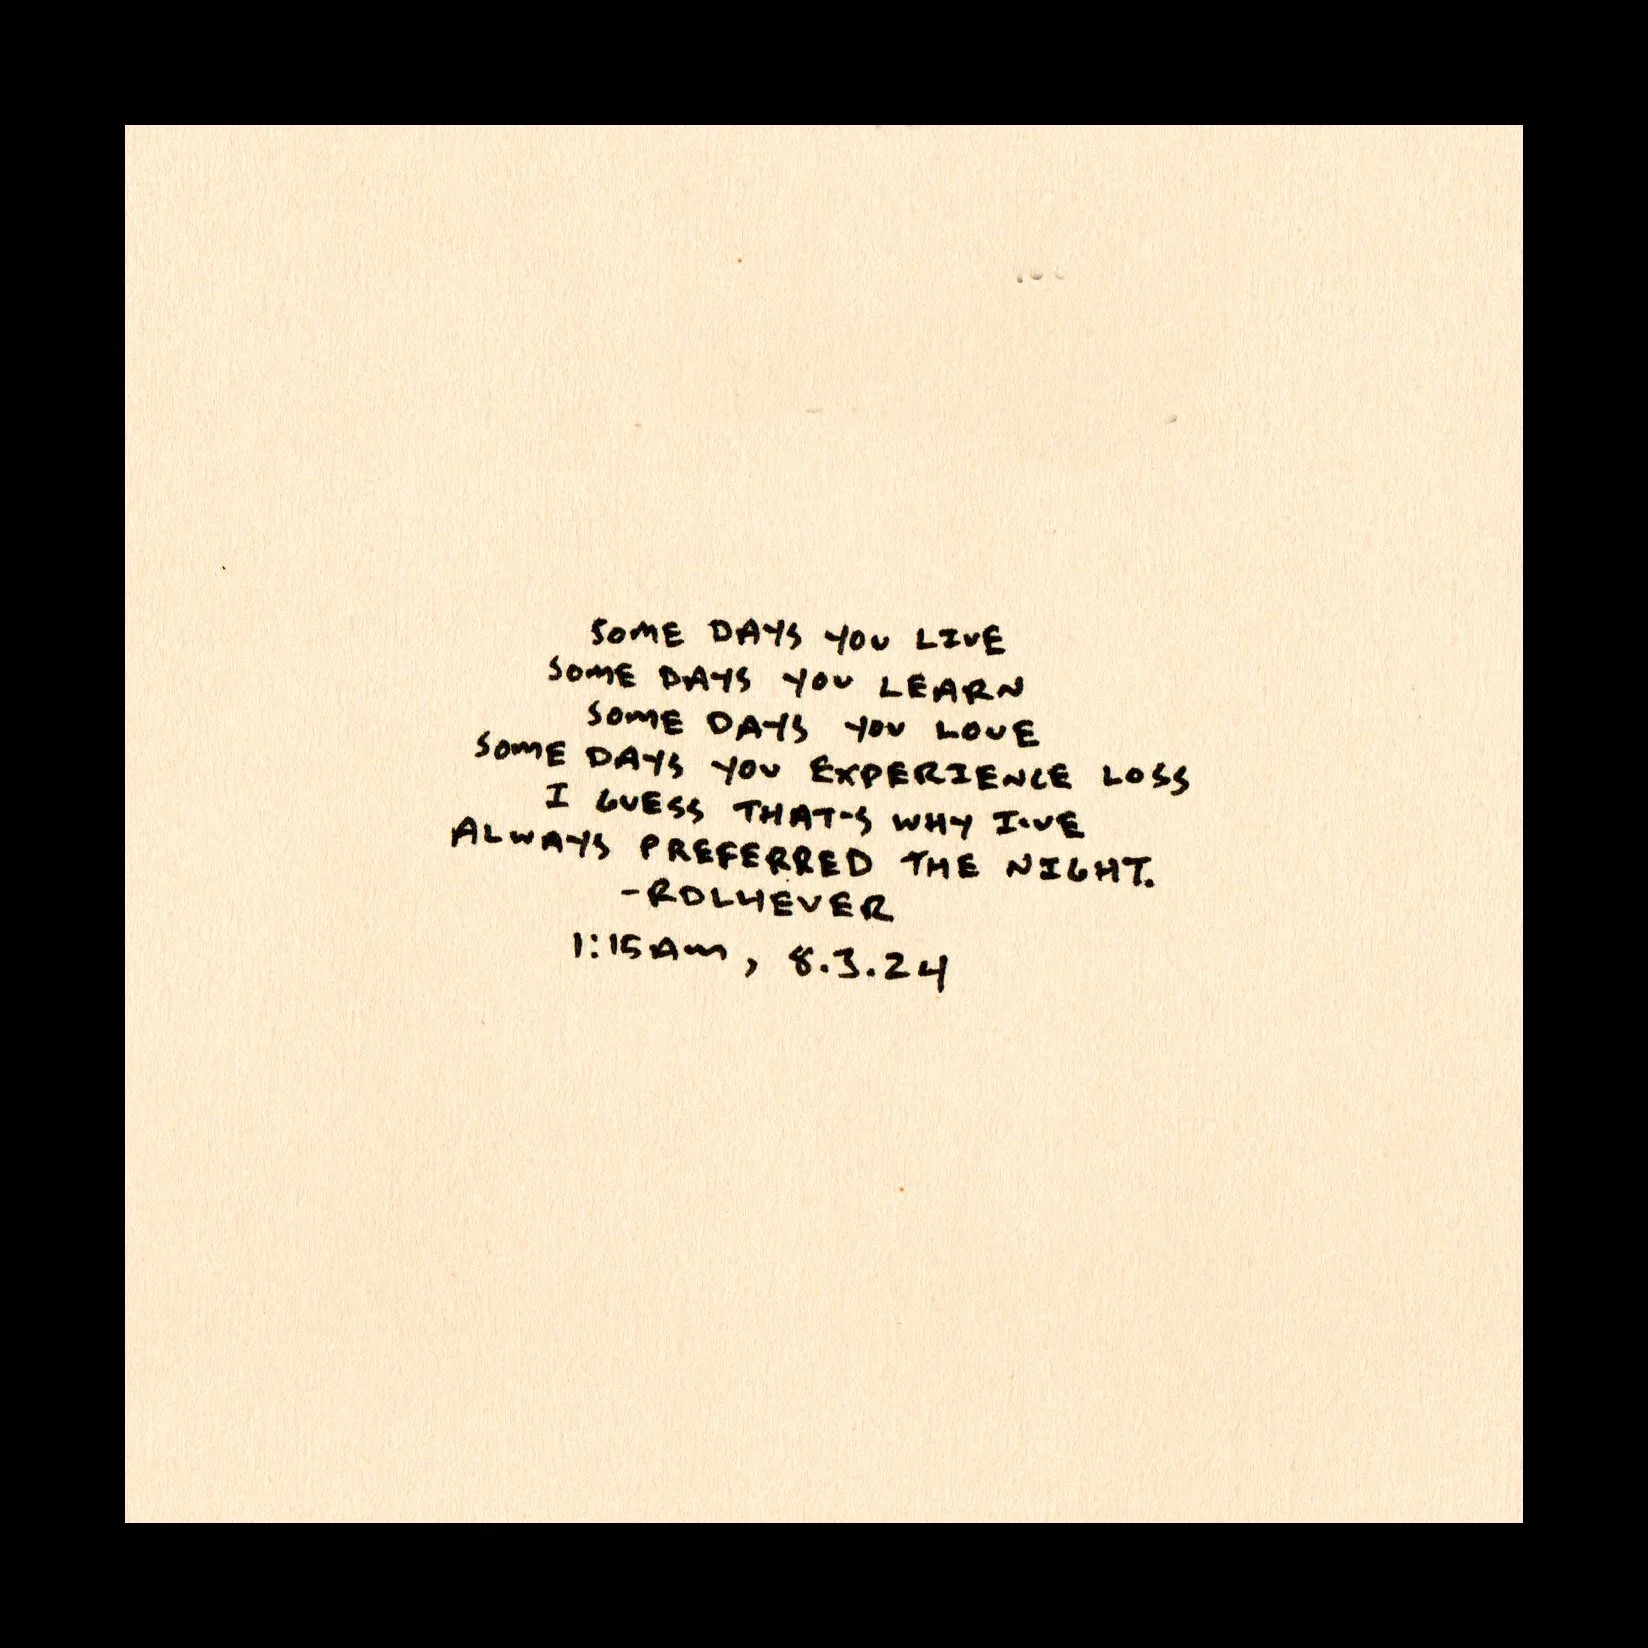 SOME DAYS YOU LIVE
SOME DAYS YOU LEARN
SOME DAYS YOU LOVE
SOME DAYS YOU EXPERIENCE LOSS
I GUESS THAT'S WHY I'VE
ALWAYS PREFERRED THE NIGHT.
-RDLHEVER
1:15AM, 8.3.24